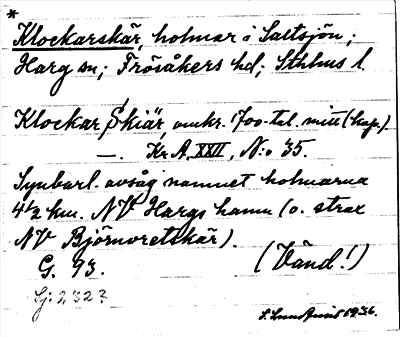 *
Klockarskär, holmar i Saltsjön;
Harg sn; Frösåkers hd; Sthlms l.
Klockar Skiär, omkr. 1700-tal. mitt (kap.)
—. Kr. A, XXII, N:o 35.
Synbarl. avsåg namnet holmarna
4½ km. NV Hargs hamn (o. strax
NV Björnoretskär).
G. 93. (Vänd!)
Sj: 232?
1936.